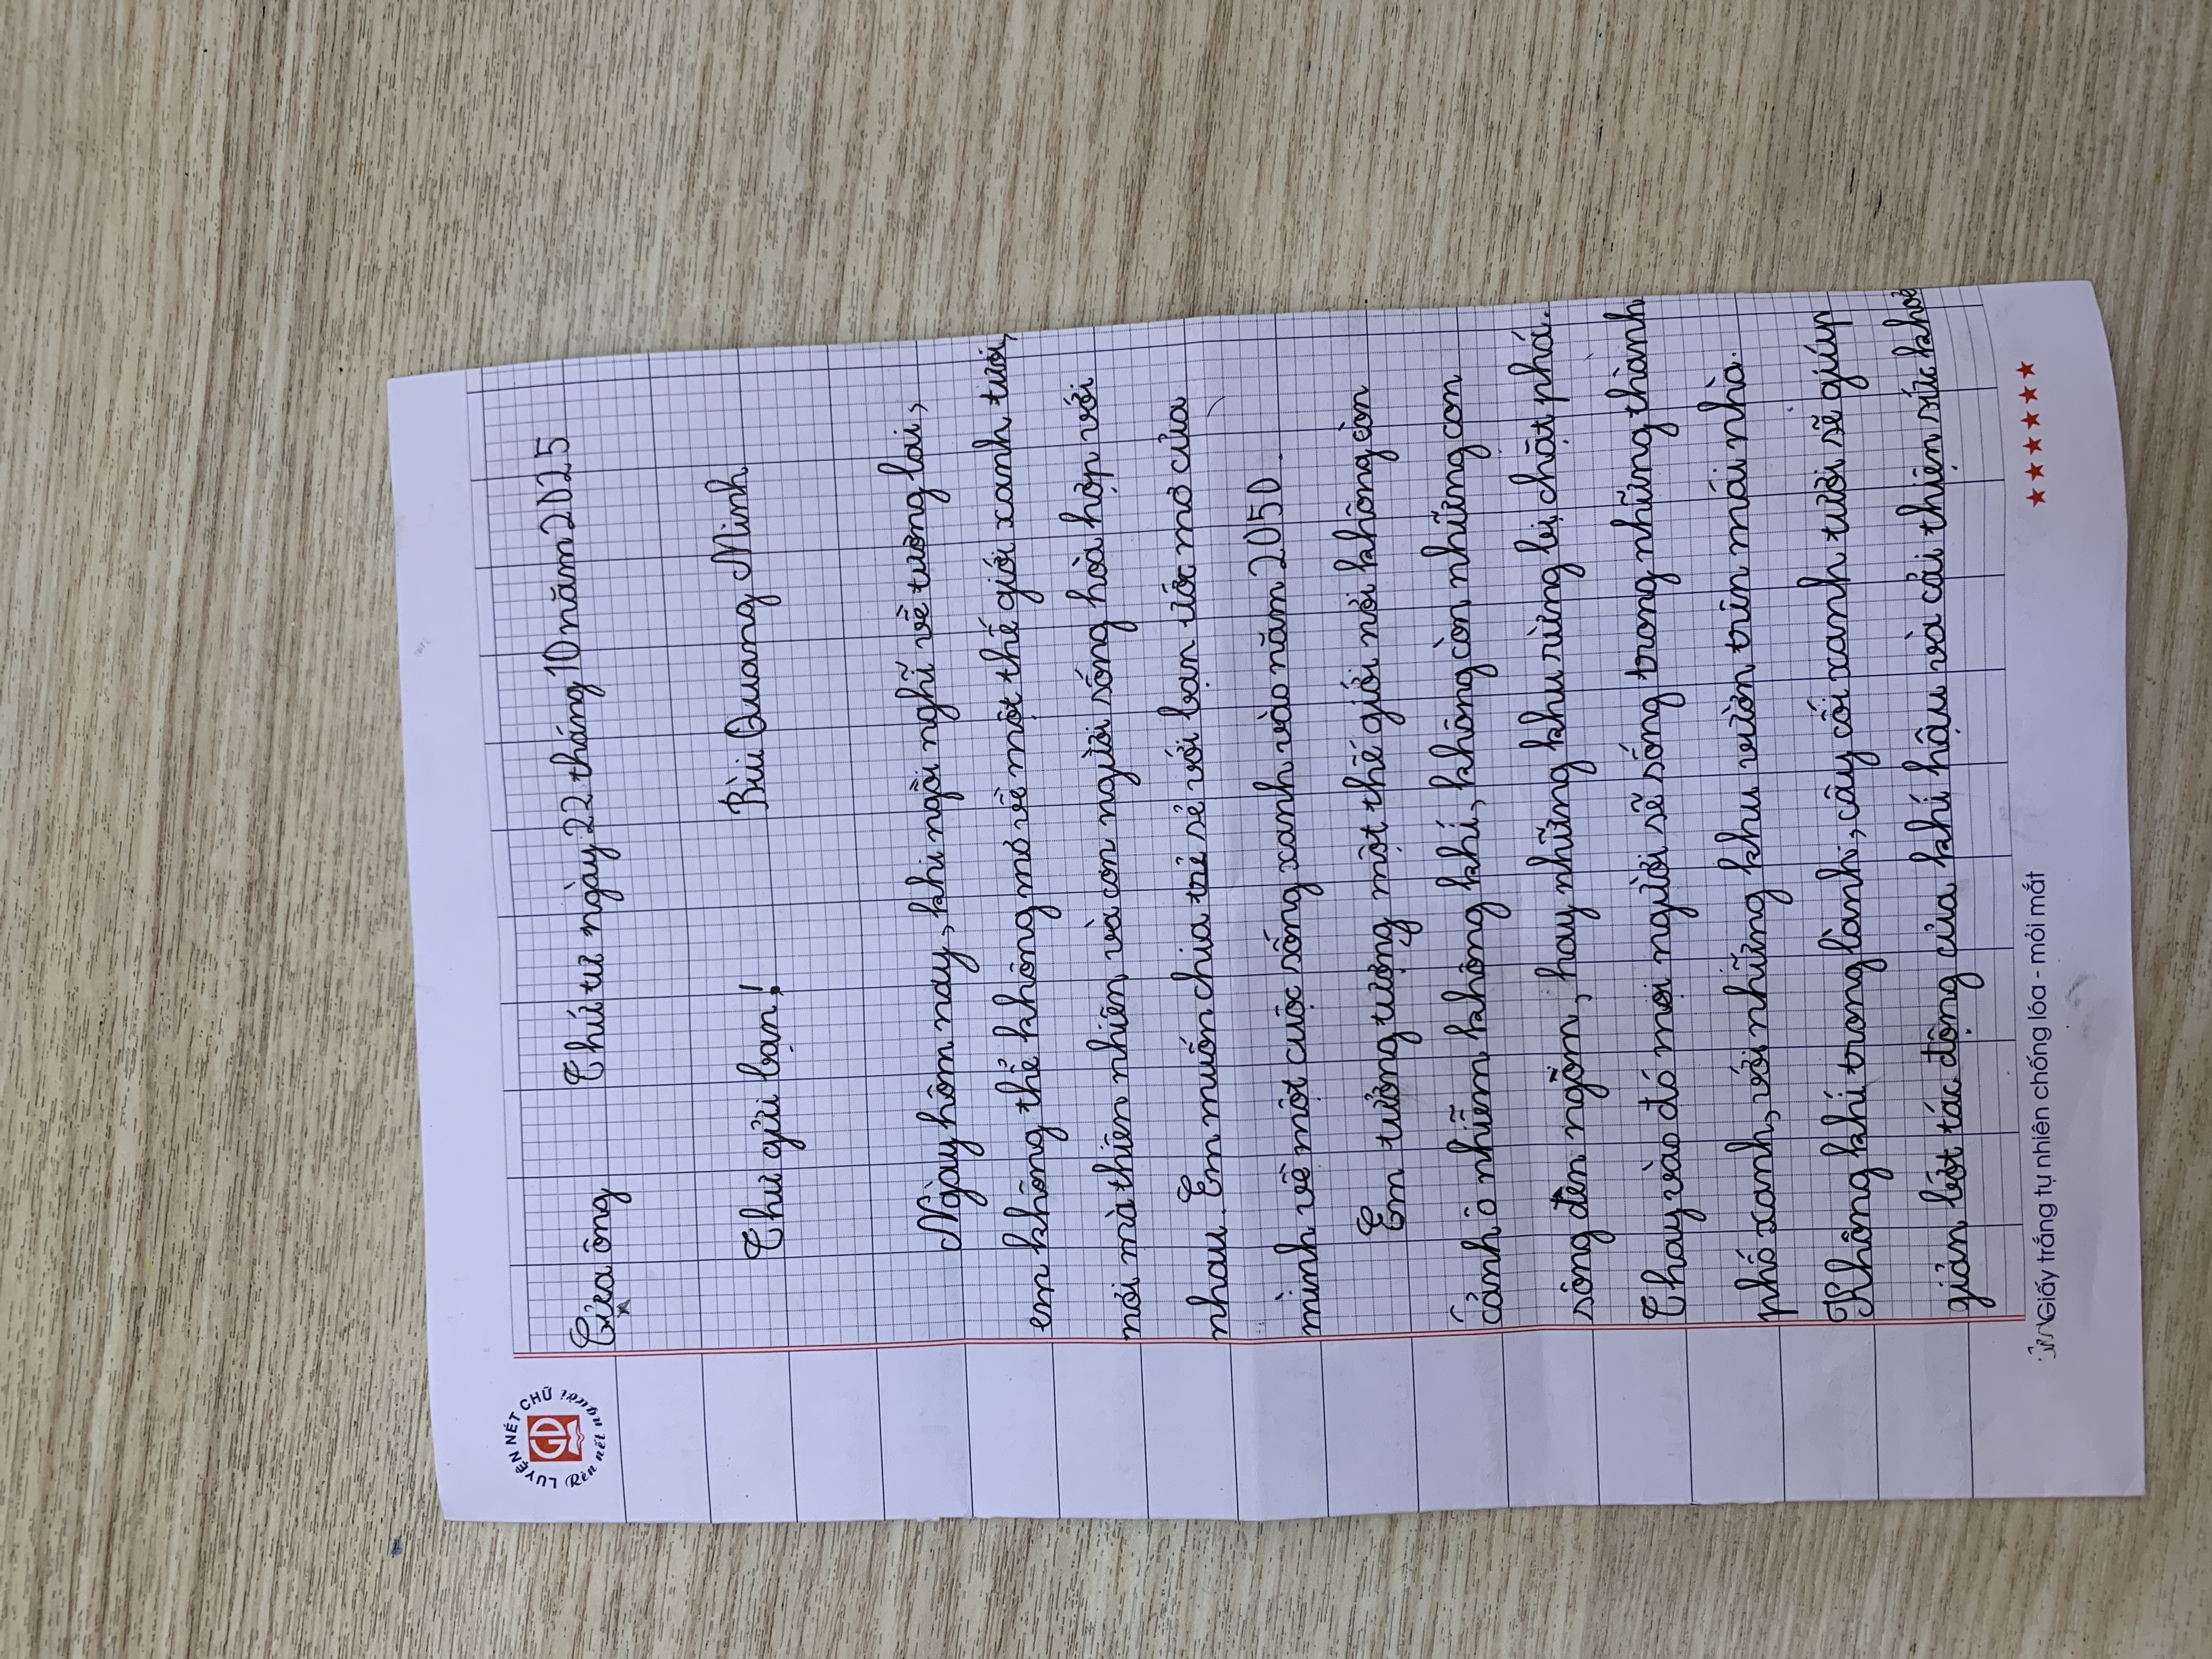 LUYỆN NÉT CHỮ
Rèn nết người
GD
Cửa ông Thứ tư ngày 22 tháng 10 năm 2025
Bùi Quang Minh
Thư gửi bạn!
Ngày hôm nay, khi ngồi nghĩ về tương lai,
em không thể không mơ về một thế giới xanh tươi,
nơi mà thiên nhiên và con người sống hòa hợp với
nhau. Em muốn chia sẻ với bạn ước mơ của
mình về một cuộc sống xanh vào năm 2050.
Em tưởng tượng một thế giới nơi không còn
cảnh ô nhiễm không khí, không còn những con
sông đen ngòm, hay những khu rừng bị chặt phá.
Thay vào đó mọi người sẽ sống trong những thành
phố xanh, với những khu vườn trên mái nhà.
Không khí trong lành, cây cối xanh tươi sẽ giúp
giản bớt tác động của khí hậu và cải thiện sức khỏe
Giấy trắng tự nhiên chống lóa - mỏi mắt